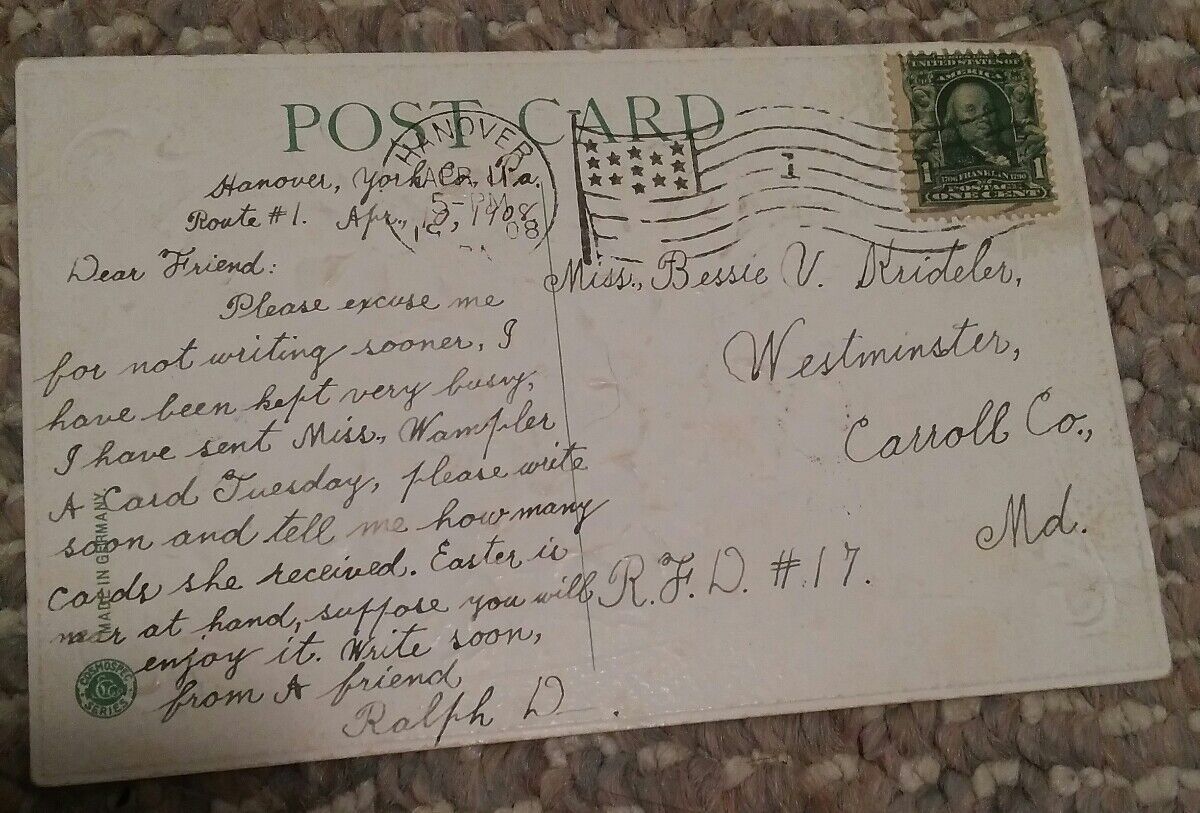 POST CARD
HANOVER
APR
5-PM
08
1
UNITED STATES OF
AMERICA
1 1
1706 FRANKLIN 1790
POSTAGE
ONE CENT
Hanover, York Co., Pa.
Route #1. Apr., 1908
Dear Friend:
Please excuse me
for not writing sooner, I
have been kept very busy,
I have sent Miss., Wampler
A Card Tuesday, please write
soon and tell me how many
cards she received. Easter is
near at hand, suppose you will
enjoy it. Write soon,
from A friend
Ralph D
Miss., Bessie V. Krideler,
Westminster,
Carroll Co.,
Md.
R.F.D. #17.
MADE IN GERMANY.
COSMOSPEC
SERIES